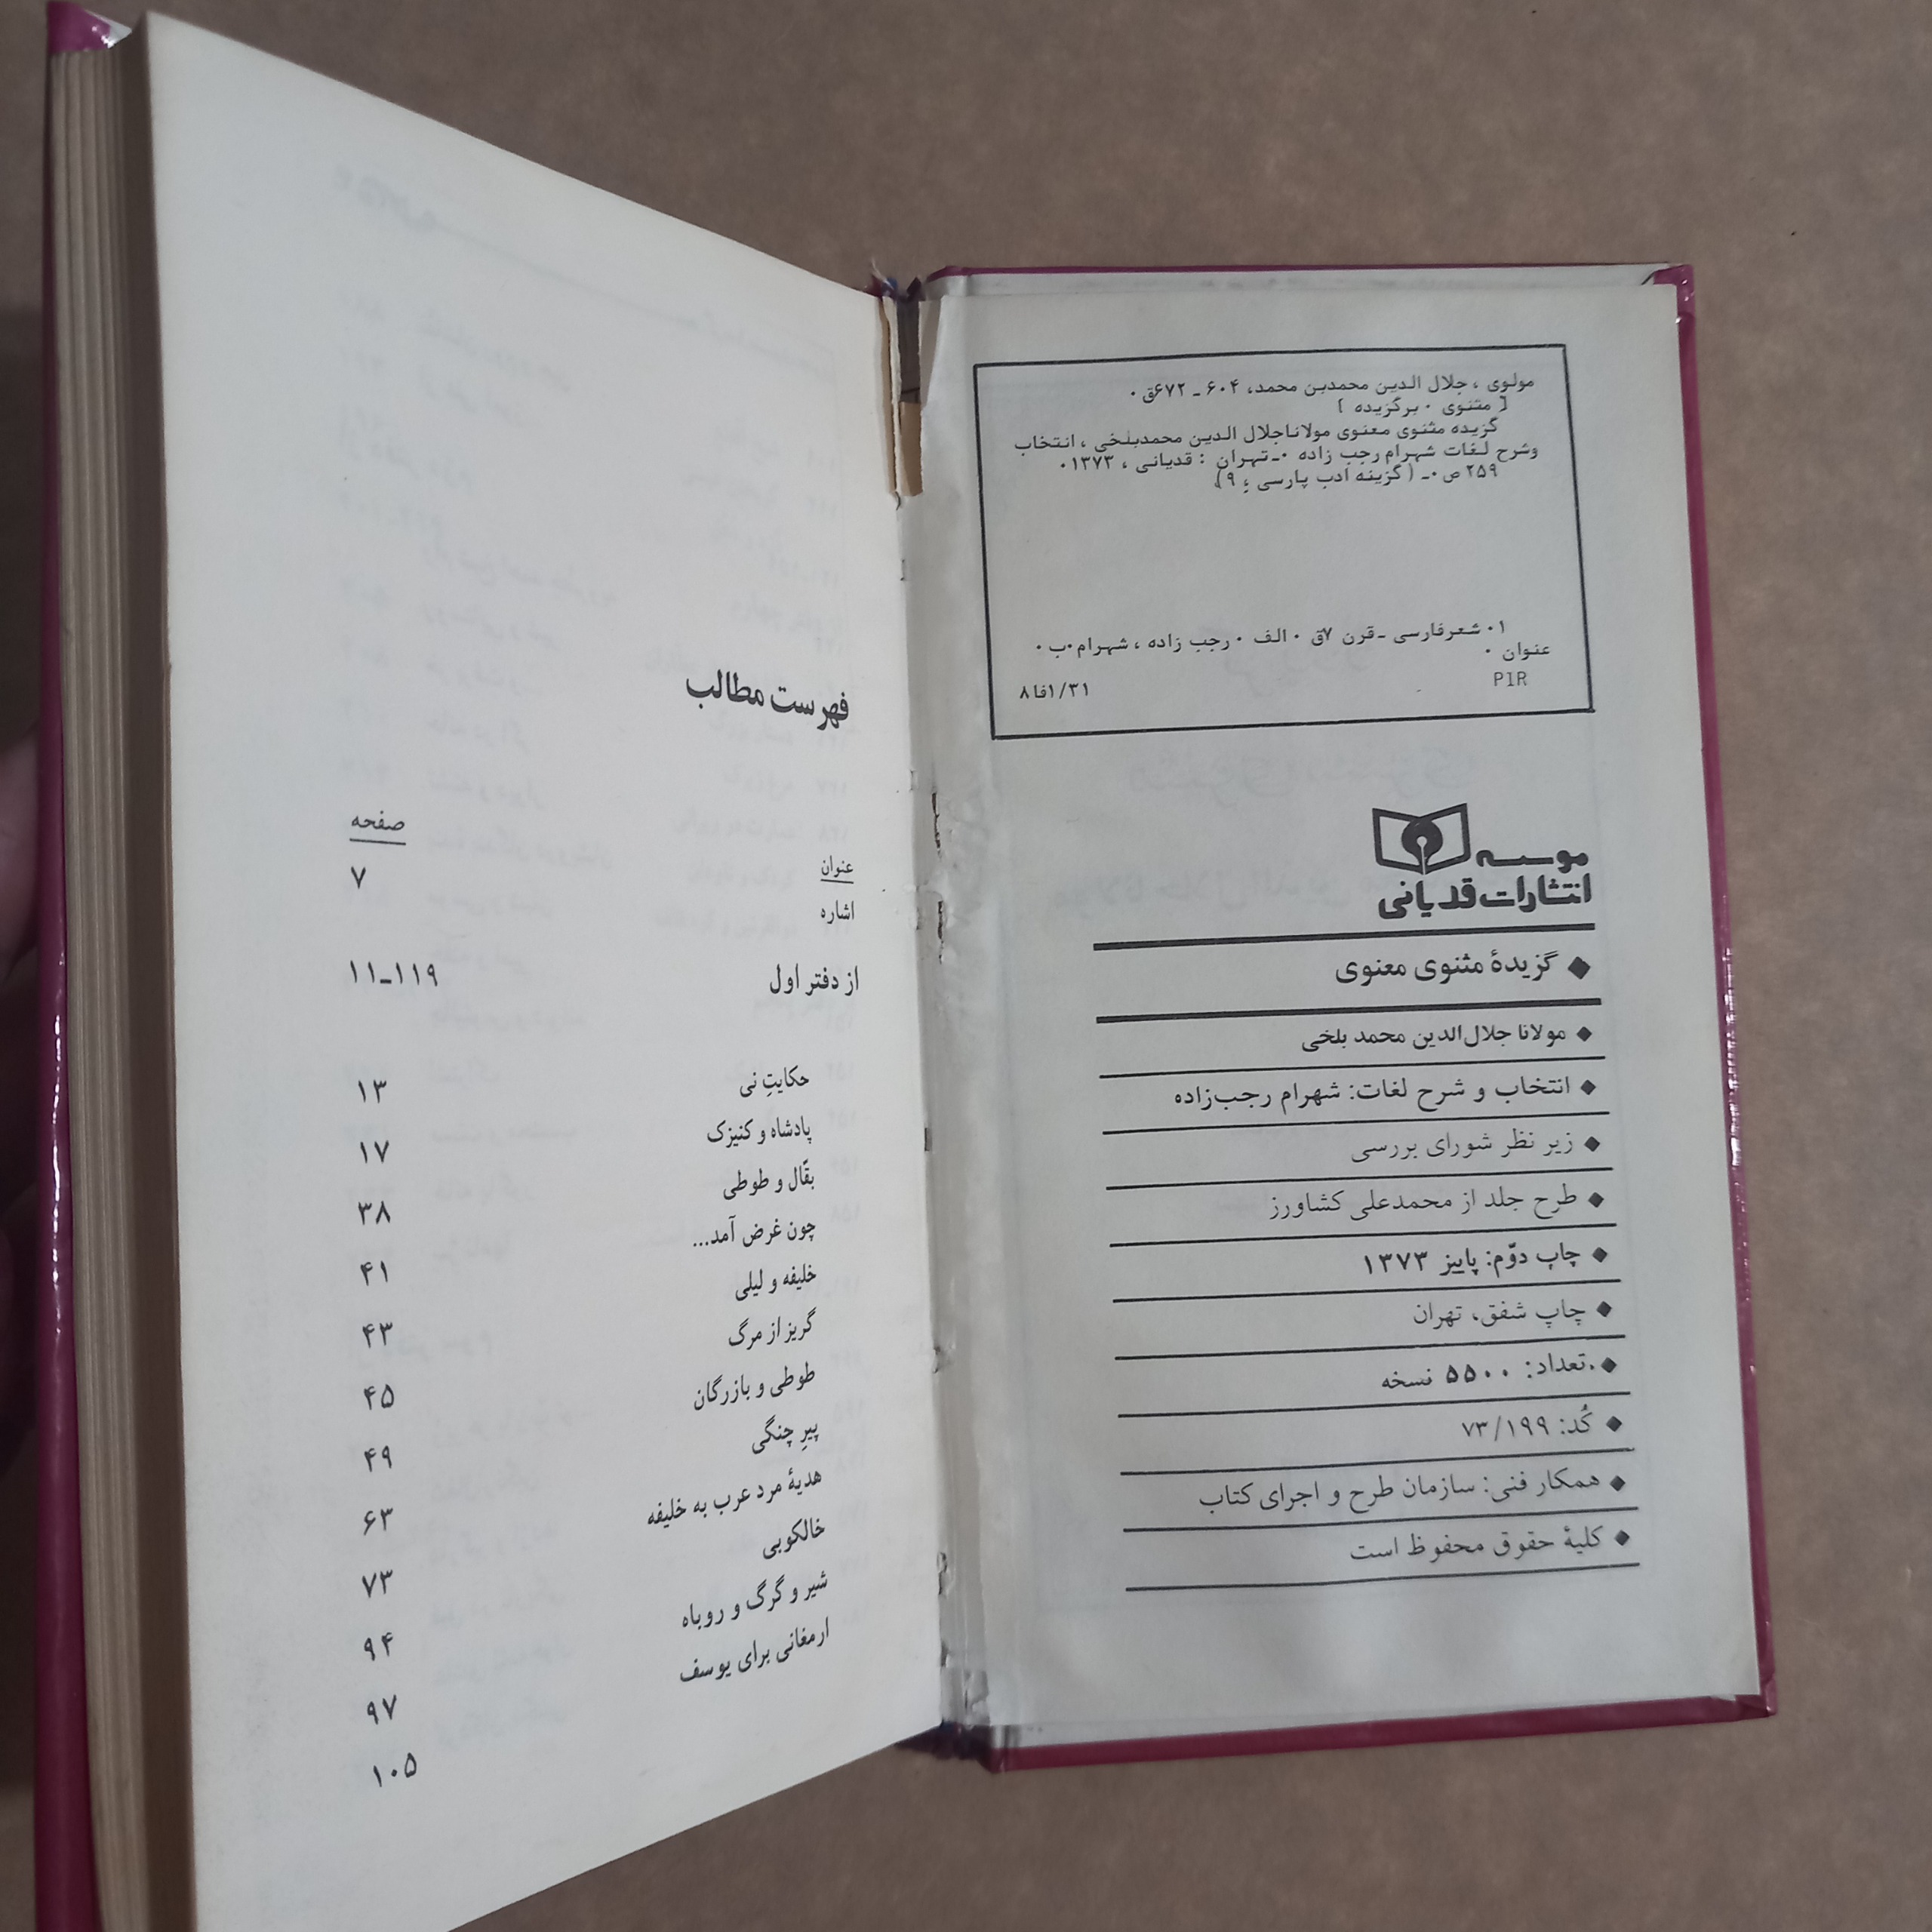 مولوی ، جلال الدین محمدبن محمد، ۶۰۴ ـ ۶۷۲ق ۰
[ مثنوی ۰ برگزیده ]
گزیده مثنوی معنوی مولاناجلال الدین محمدبلخی ، انتخاب
وشرح لغات شهرام رجب زاده ۰ـ تهران : قدیانی ، ۱۳۷۳۰
۲۵۹ ص ۰ـ ( گزینه ادب پارسی ؛ ۹)
۱۰ شعرفارسی ـ قرن ۷ق ۰ الف ۰ رجب زاده ، شهرام ۰ب ۰
عنوان ۰
PIR
۸فا۱/۳۱
موسسه
انتشارات قدیانی
گزیدهٔ مثنوی معنوی
مولانا جلال‌الدین محمد بلخی
انتخاب و شرح لغات: شهرام رجب‌زاده
زیر نظر شورای بررسی
طرح جلد از محمدعلی کشاورز
چاپ دوّم: پاییز ۱۳۷۳
چاپ شفق، تهران
تعداد: ۵۵۰۰ نسخه
کُد: ۷۳/۱۹۹
همکار فنی: سازمان طرح و اجرای کتاب
کلیهٔ حقوق محفوظ است
فهرست مطالب
عنوان صفحه
اشاره ۷
از دفتر اول ۱۱ـ۱۱۹
حکایتِ نی ۱۳
پادشاه و کنیزک ۱۷
بقّال و طوطی ۳۸
چون غرض آمد... ۴۱
خلیفه و لیلی ۴۳
گریز از مرگ ۴۵
طوطی و بازرگان ۴۹
پیرِ چنگی ۶۳
هدیهٔ مرد عرب به خلیفه ۷۳
خالکوبی ۹۴
شیر و گرگ و روباه ۹۷
ارمغانی برای یوسف ۱۰۵